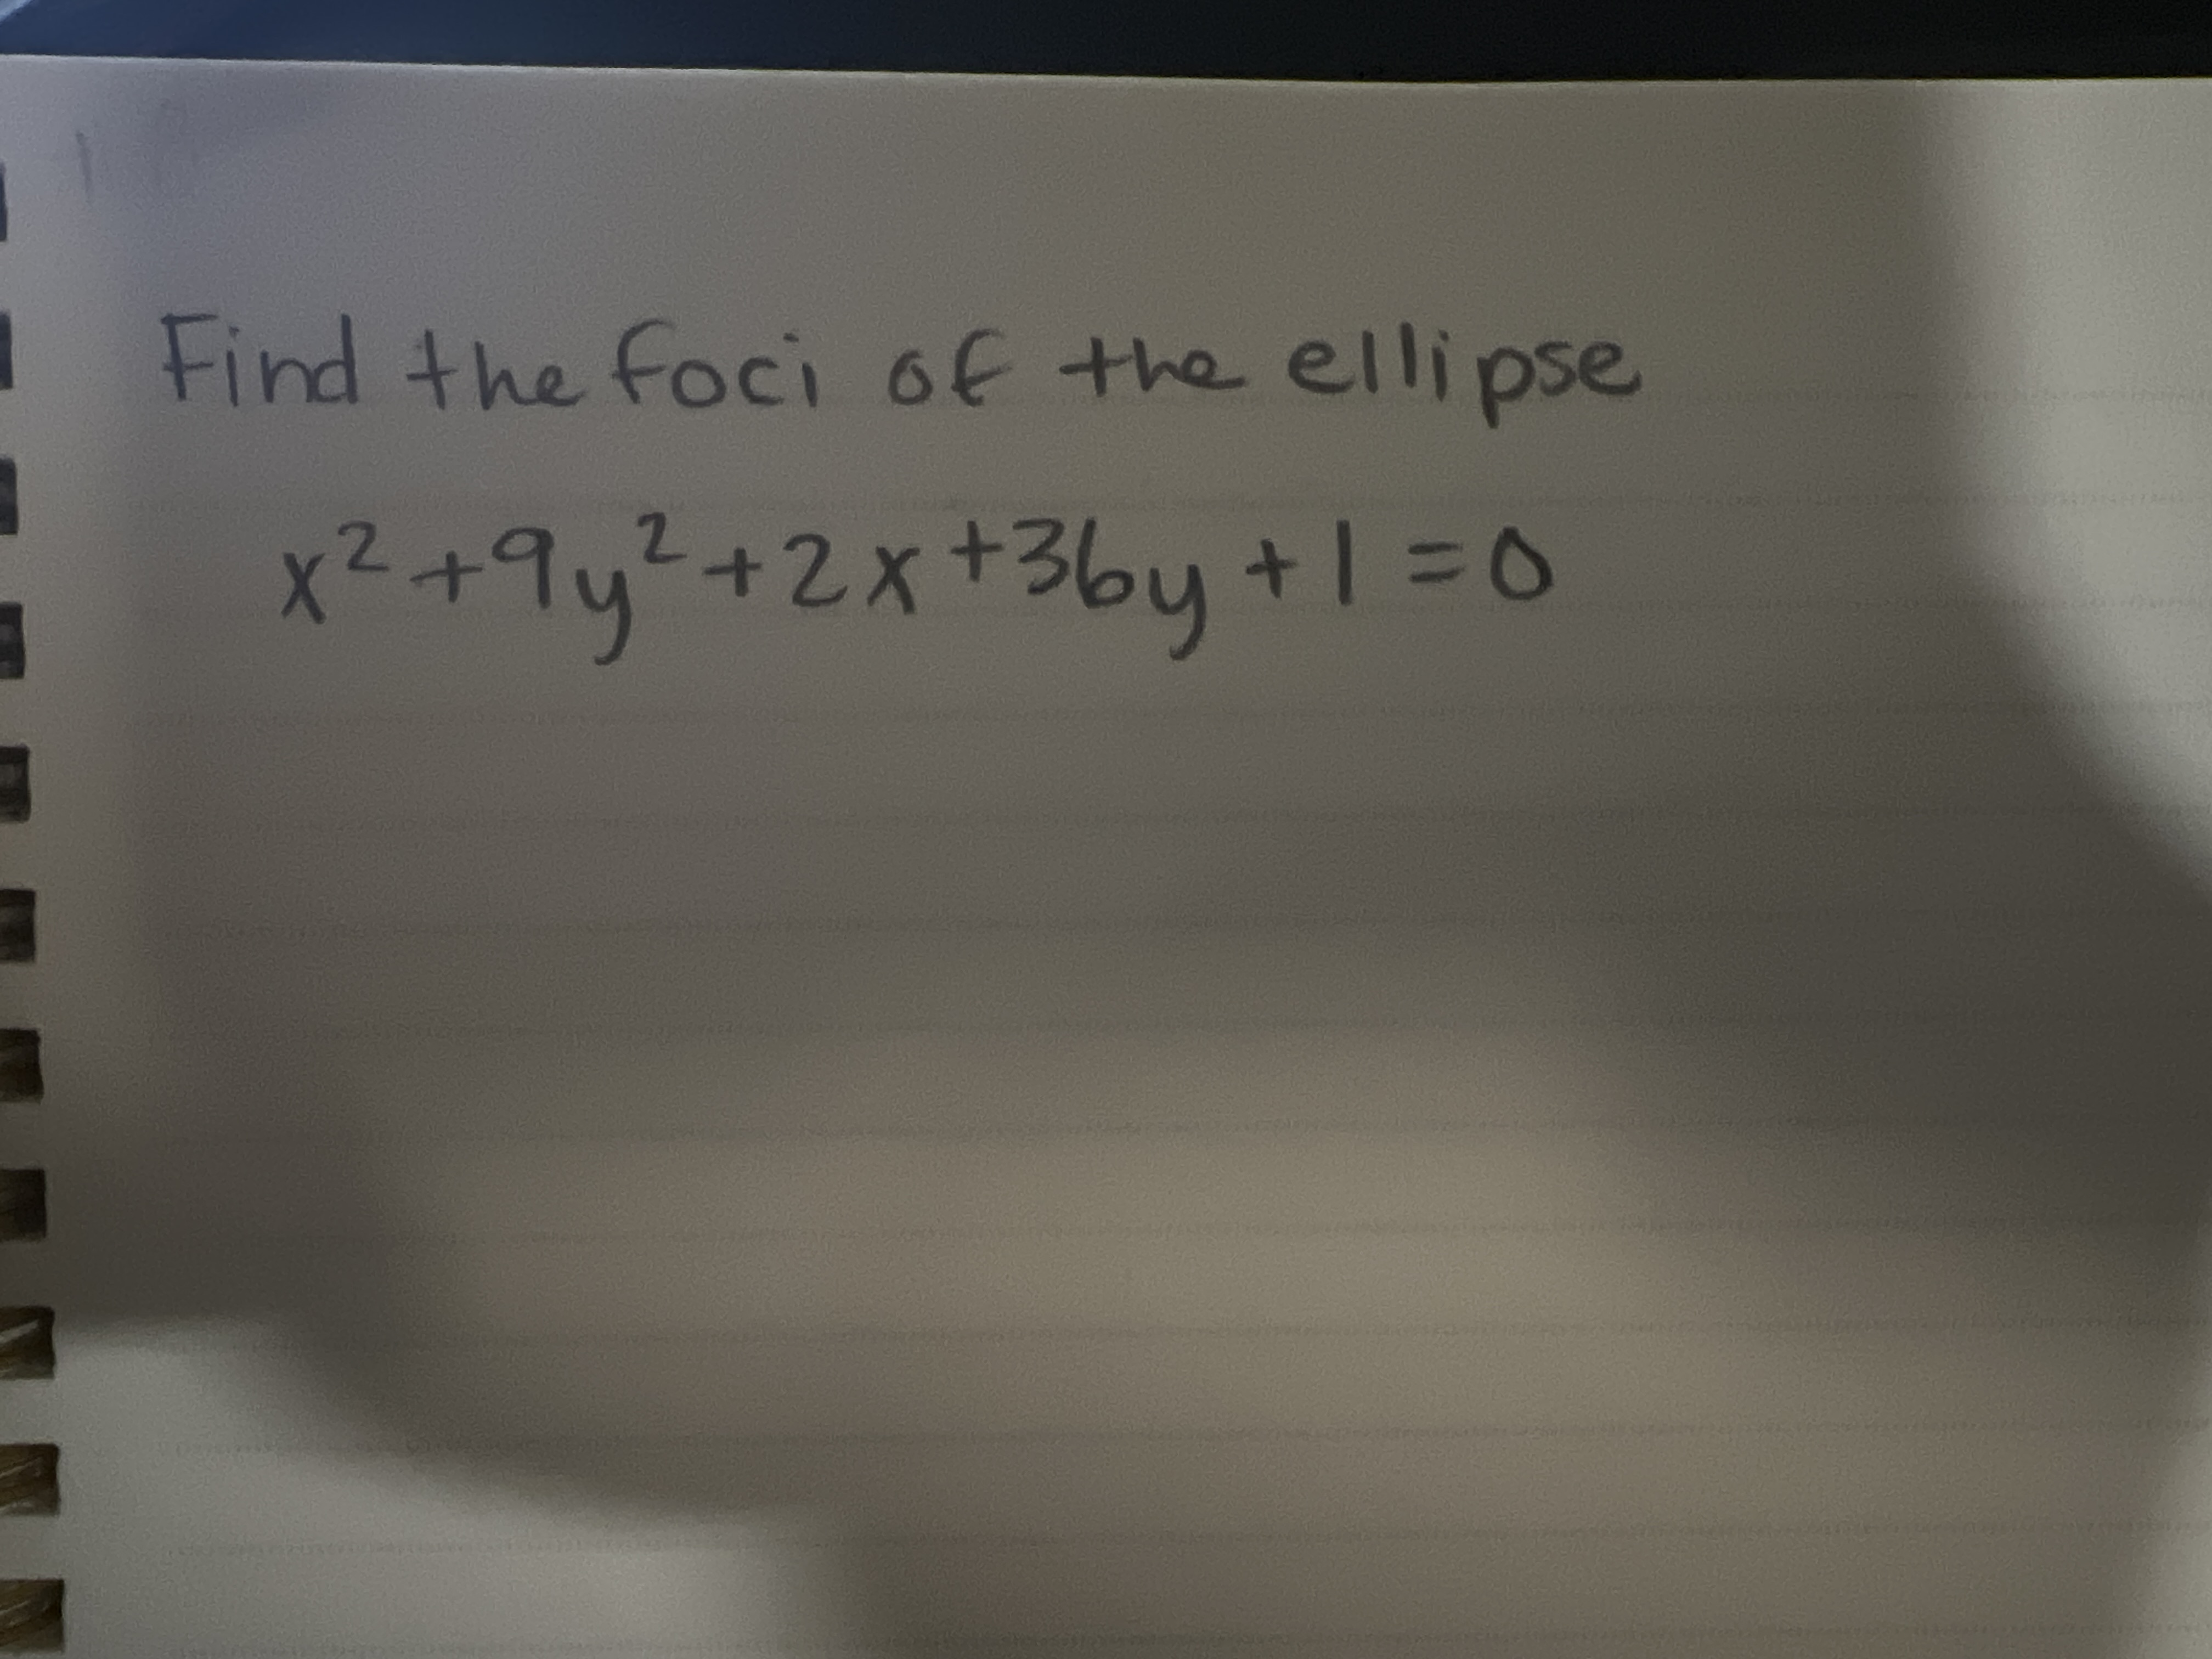 Find the foci of the ellipse
x² + 9y² + 2x + 36y + 1 = 0